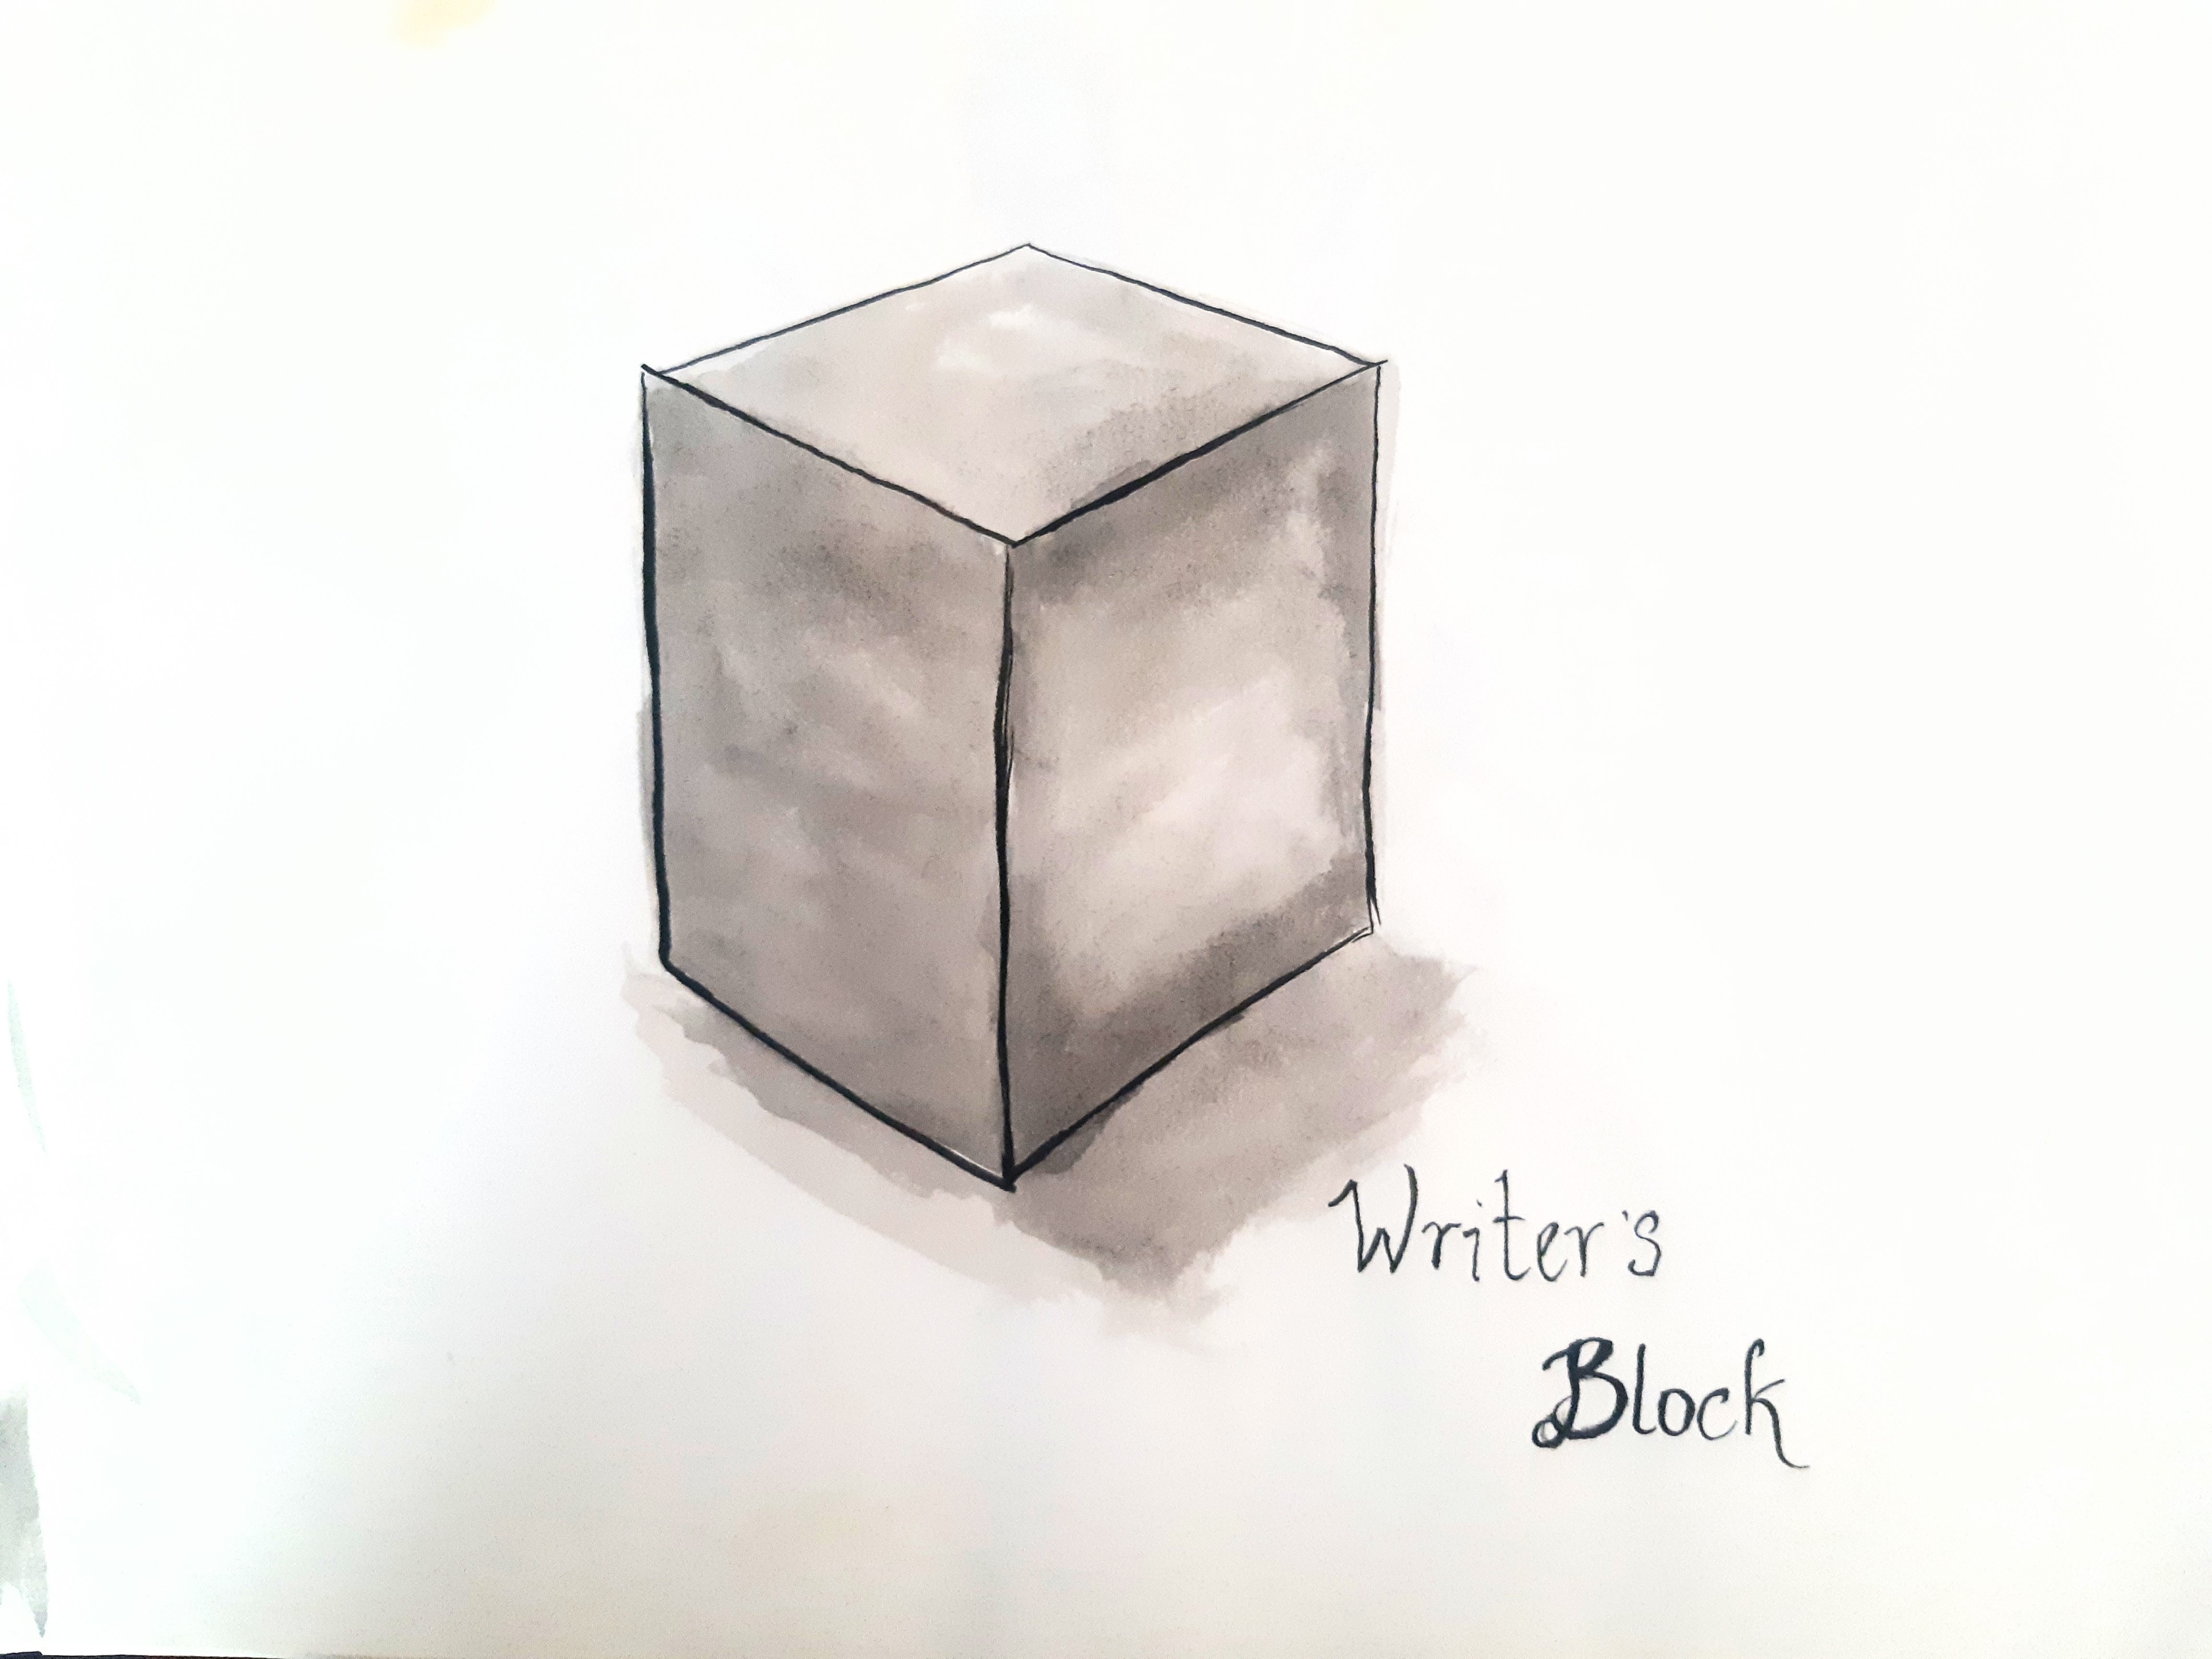 Writer's
Block